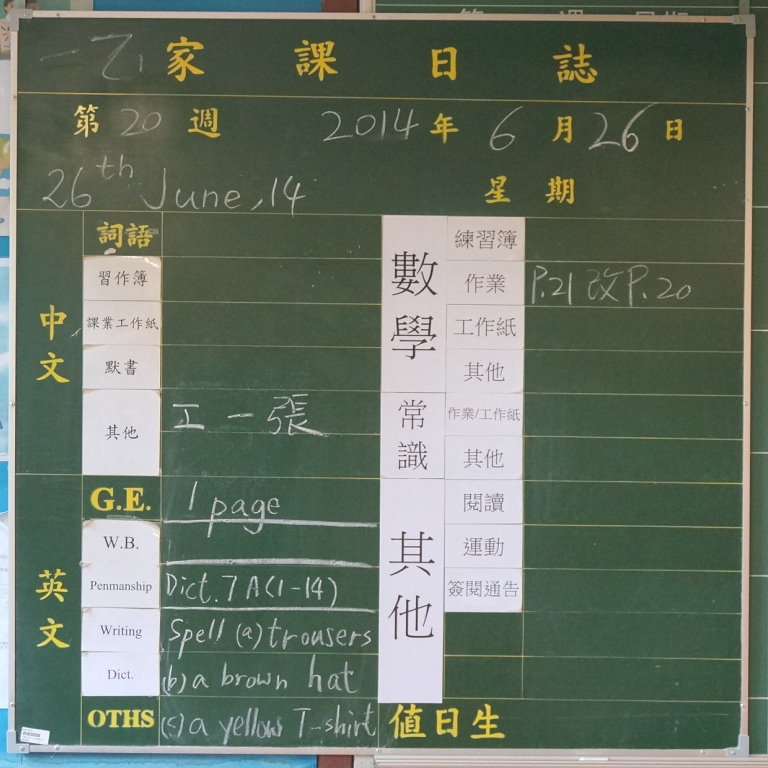 一乙 家課日誌
第20週 2014年6月26日
26th June,14 星期
中文
詞語
習作簿
課業工作紙
默書
其他 工一張
英文
G.E. 1 page
W.B.
Penmanship Dict. 7A(1-14)
Writing Spell (a) trousers
Dict. (b) a brown hat
OTHS (c) a yellow T-shirt
數學
練習簿
作業 P.21 改P.20
工作紙
其他
常識
作業/工作紙
其他
其他
閱讀
運動
簽閱通告
值日生